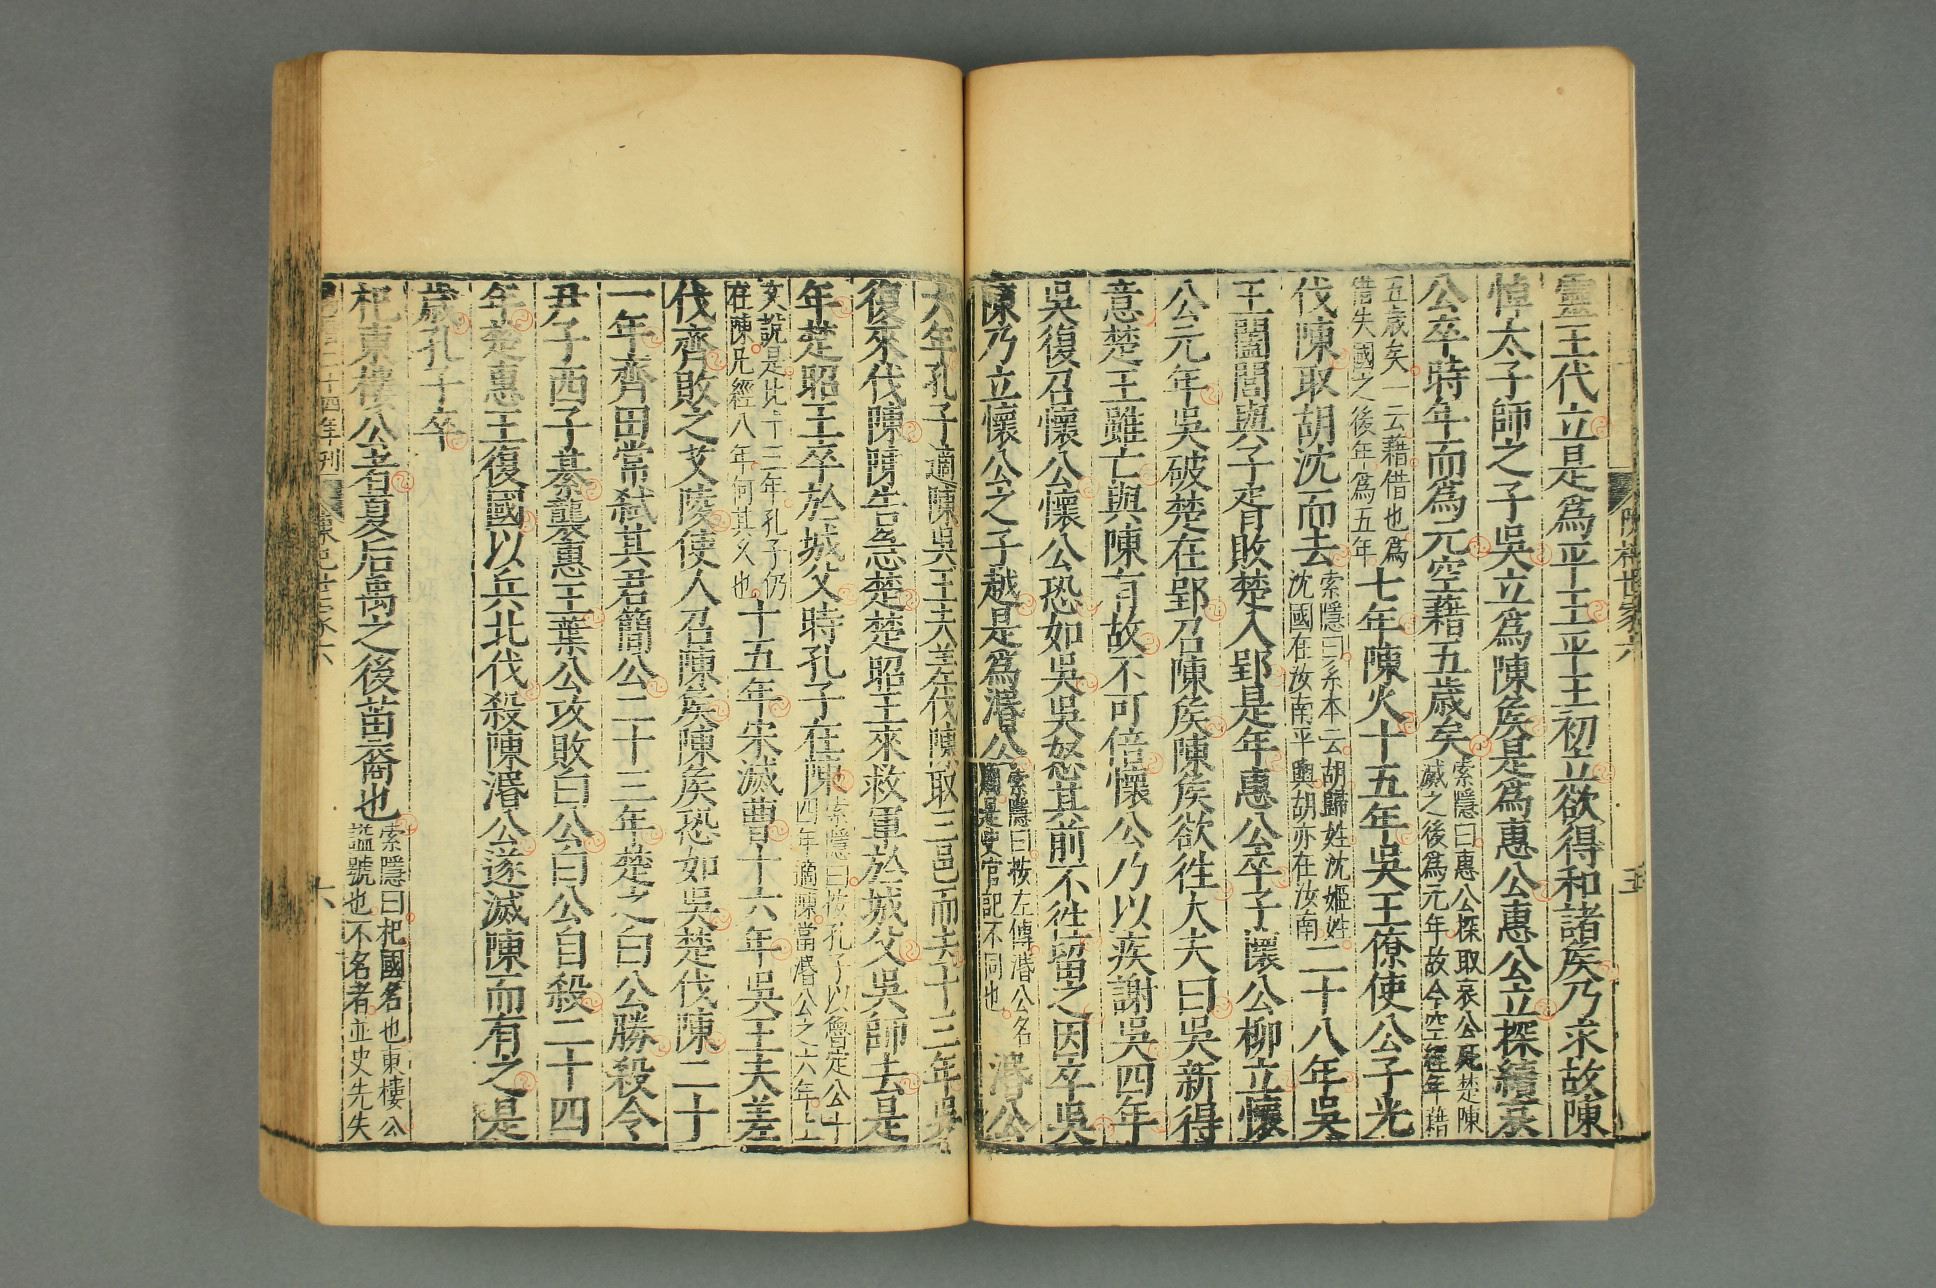 陳杞世家六
五
靈王代立是爲平王平王初立欲得和諸侯乃求故陳
悼太子師之子吳立爲陳侯是爲惠公惠公立探續哀
公卒時年而爲元空藉五歲矣索隱曰惠公探取哀公死楚陳
滅之後爲元年故今空經年藉
五歲矣一云藉借也爲
借失國之後年爲五年七年陳火十五年吳王僚使公子光
伐陳取胡沈而去索隱曰系本云胡歸姓沈姬姓
沈國在汝南平輿胡亦在汝南二十八年吳
王闔閭與子胥敗楚入郢是年惠公卒子懷公柳立懷
公元年吳破楚在郢召陳侯陳侯欲往大夫曰吳新得
意楚王雖亡與陳有故不可倍懷公乃以疾謝吳四年
吳復召懷公懷公恐如吳吳怒其前不往留之因卒吳
陳乃立懷公之子越是爲湣公索隱曰按左傳湣公名
周是史官記不同也湣公
六年孔子適陳吳王夫差伐陳取三邑而去十三年吳
復來伐陳陳告急楚楚昭王來救軍於城父吳師去是
年楚昭王卒於城父時孔子在陳索隱曰按孔子以魯定公十
四年適陳當湣公之六年上
文說是此十三年孔子仍
在陳凡經八年何其久也十五年宋滅曹十六年吳王夫差
伐齊敗之艾陵使人召陳侯陳侯恐如吳楚伐陳二十
一年齊田常弑其君簡公二十三年楚之白公勝殺令
尹子西子綦襲惠王葉公攻敗白公白公自殺二十四
年楚惠王復國以兵北伐殺陳湣公遂滅陳而有之是
歲孔子卒
杞東樓公者夏后禹之後苗裔也索隱曰杞國名也東樓公
謚號也不名者並史先失
二十四年刊
陳杞世家六
六